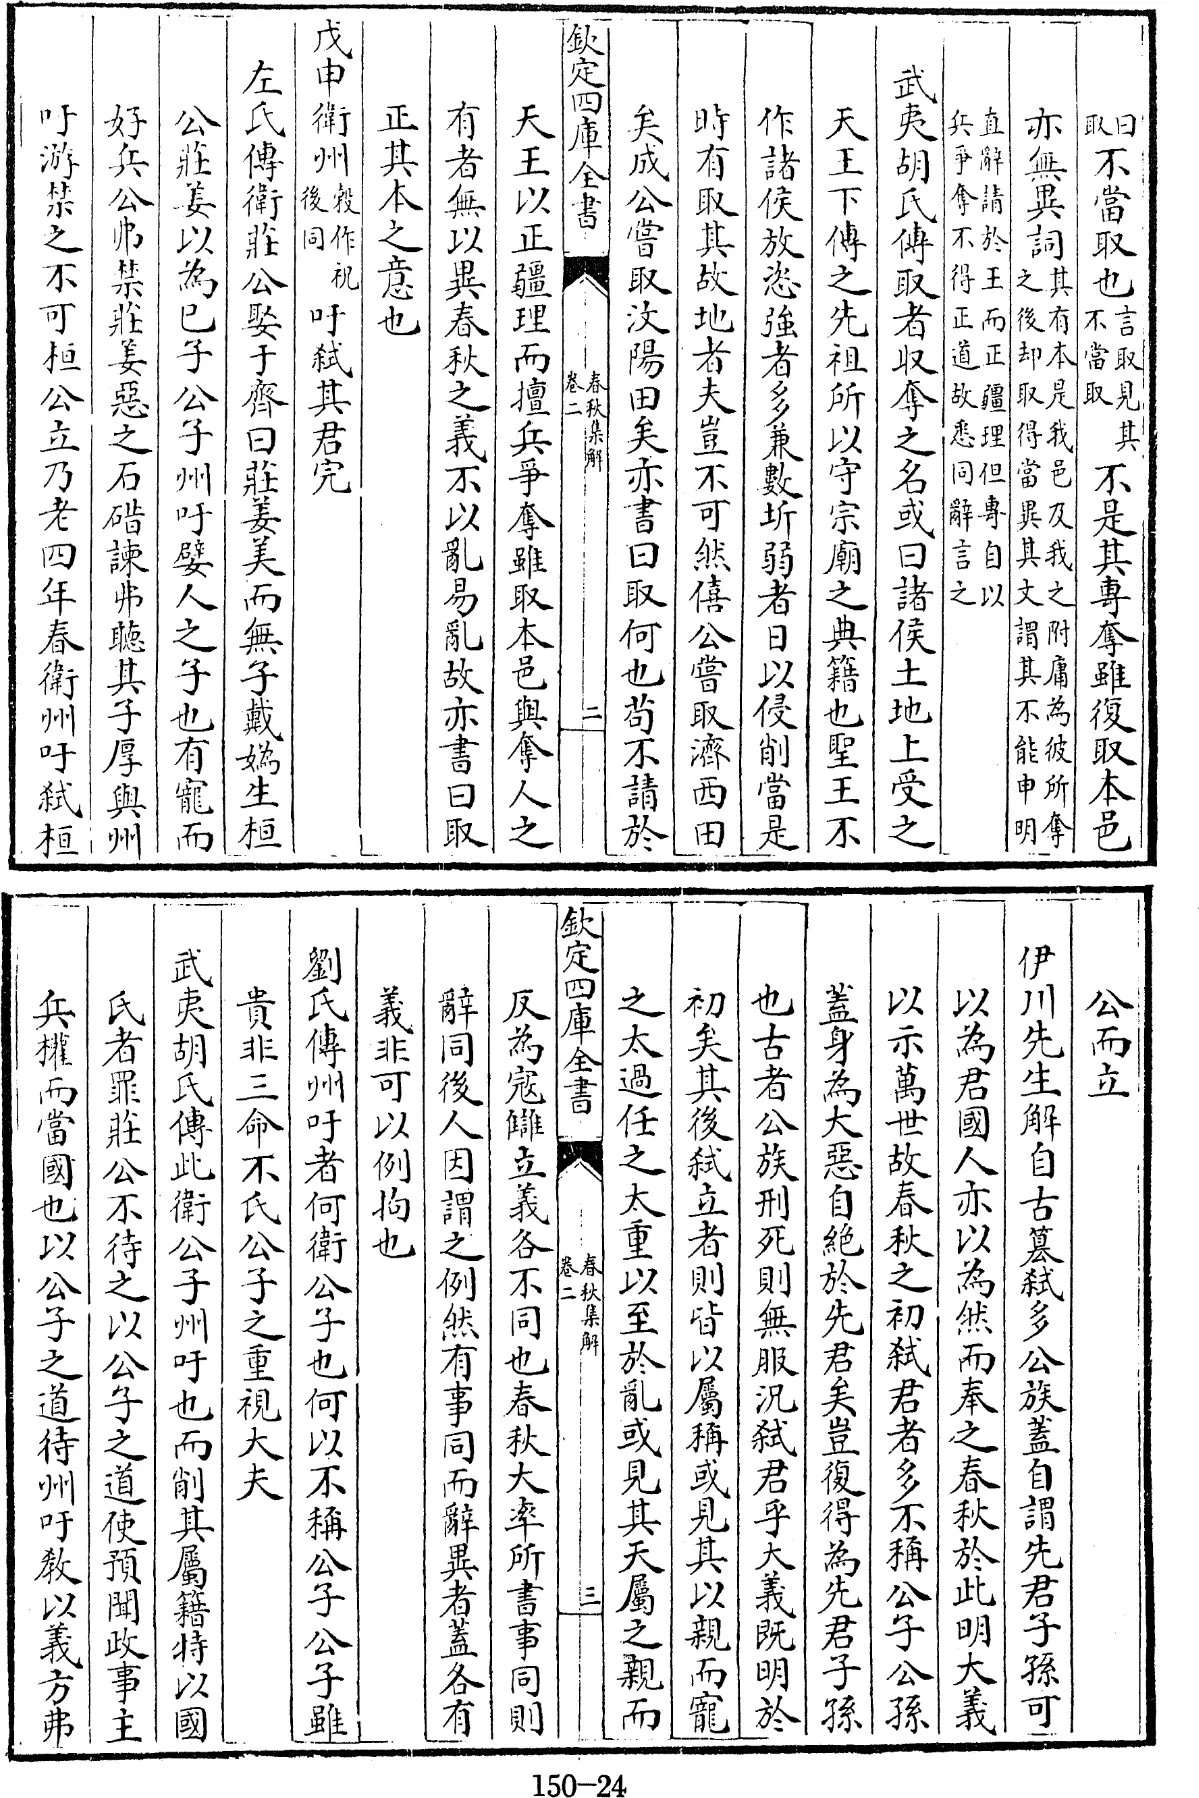 曰取不當取也言取見其不當取不是其專奪雖復取本邑
亦無異詞其有本是我邑及我之附庸為彼所奪之後却取得當異其文謂其不能申明
直辭請於王而正疆理但專自以兵爭奪不得正道故悉同辭言之
武夷胡氏傳取者收奪之名或曰諸侯土地上受之
天王下傳之先祖所以守宗廟之典籍也聖王不
作諸侯放恣強者多兼數圻弱者日以侵削當是
時有取其故地者夫豈不可然僖公嘗取濟西田
矣成公嘗取汶陽田矣亦書曰取何也苟不請於
欽定四庫全書
春秋集解
卷二
二
天王以正疆理而擅兵爭奪雖取本邑與奪人之
有者無以異春秋之義不以亂易亂故亦書曰取
正其本之意也
戊申衛州穀作祝後同吁弑其君完
左氏傳衛莊公娶于齊曰莊姜美而無子戴媯生桓
公莊姜以為己子公子州吁嬖人之子也有寵而
好兵公弗禁莊姜惡之石碏諫弗聽其子厚與州
吁游禁之不可桓公立乃老四年春衛州吁弑桓
公而立
伊川先生解自古簒弑多公族蓋自謂先君子孫可
以為君國人亦以為然而奉之春秋於此明大義
以示萬世故春秋之初弑君者多不稱公子公孫
蓋身為大惡自絕於先君矣豈復得為先君子孫
也古者公族刑死則無服況弑君乎大義既明於
初矣其後弑立者則皆以屬稱或見其以親而寵
之太過任之太重以至於亂或見其天屬之親而
欽定四庫全書
春秋集解
卷二
三
反為寇讎立義各不同也春秋大率所書事同則
辭同後人因謂之例然有事同而辭異者蓋各有
義非可以例拘也
劉氏傳州吁者何衛公子也何以不稱公子公子雖
貴非三命不氏公子之重視大夫
武夷胡氏傳此衛公子州吁也而削其屬籍特以國
氏者罪莊公不待之以公子之道使預聞政事主
兵權而當國也以公子之道待州吁教以義方弗
150-24